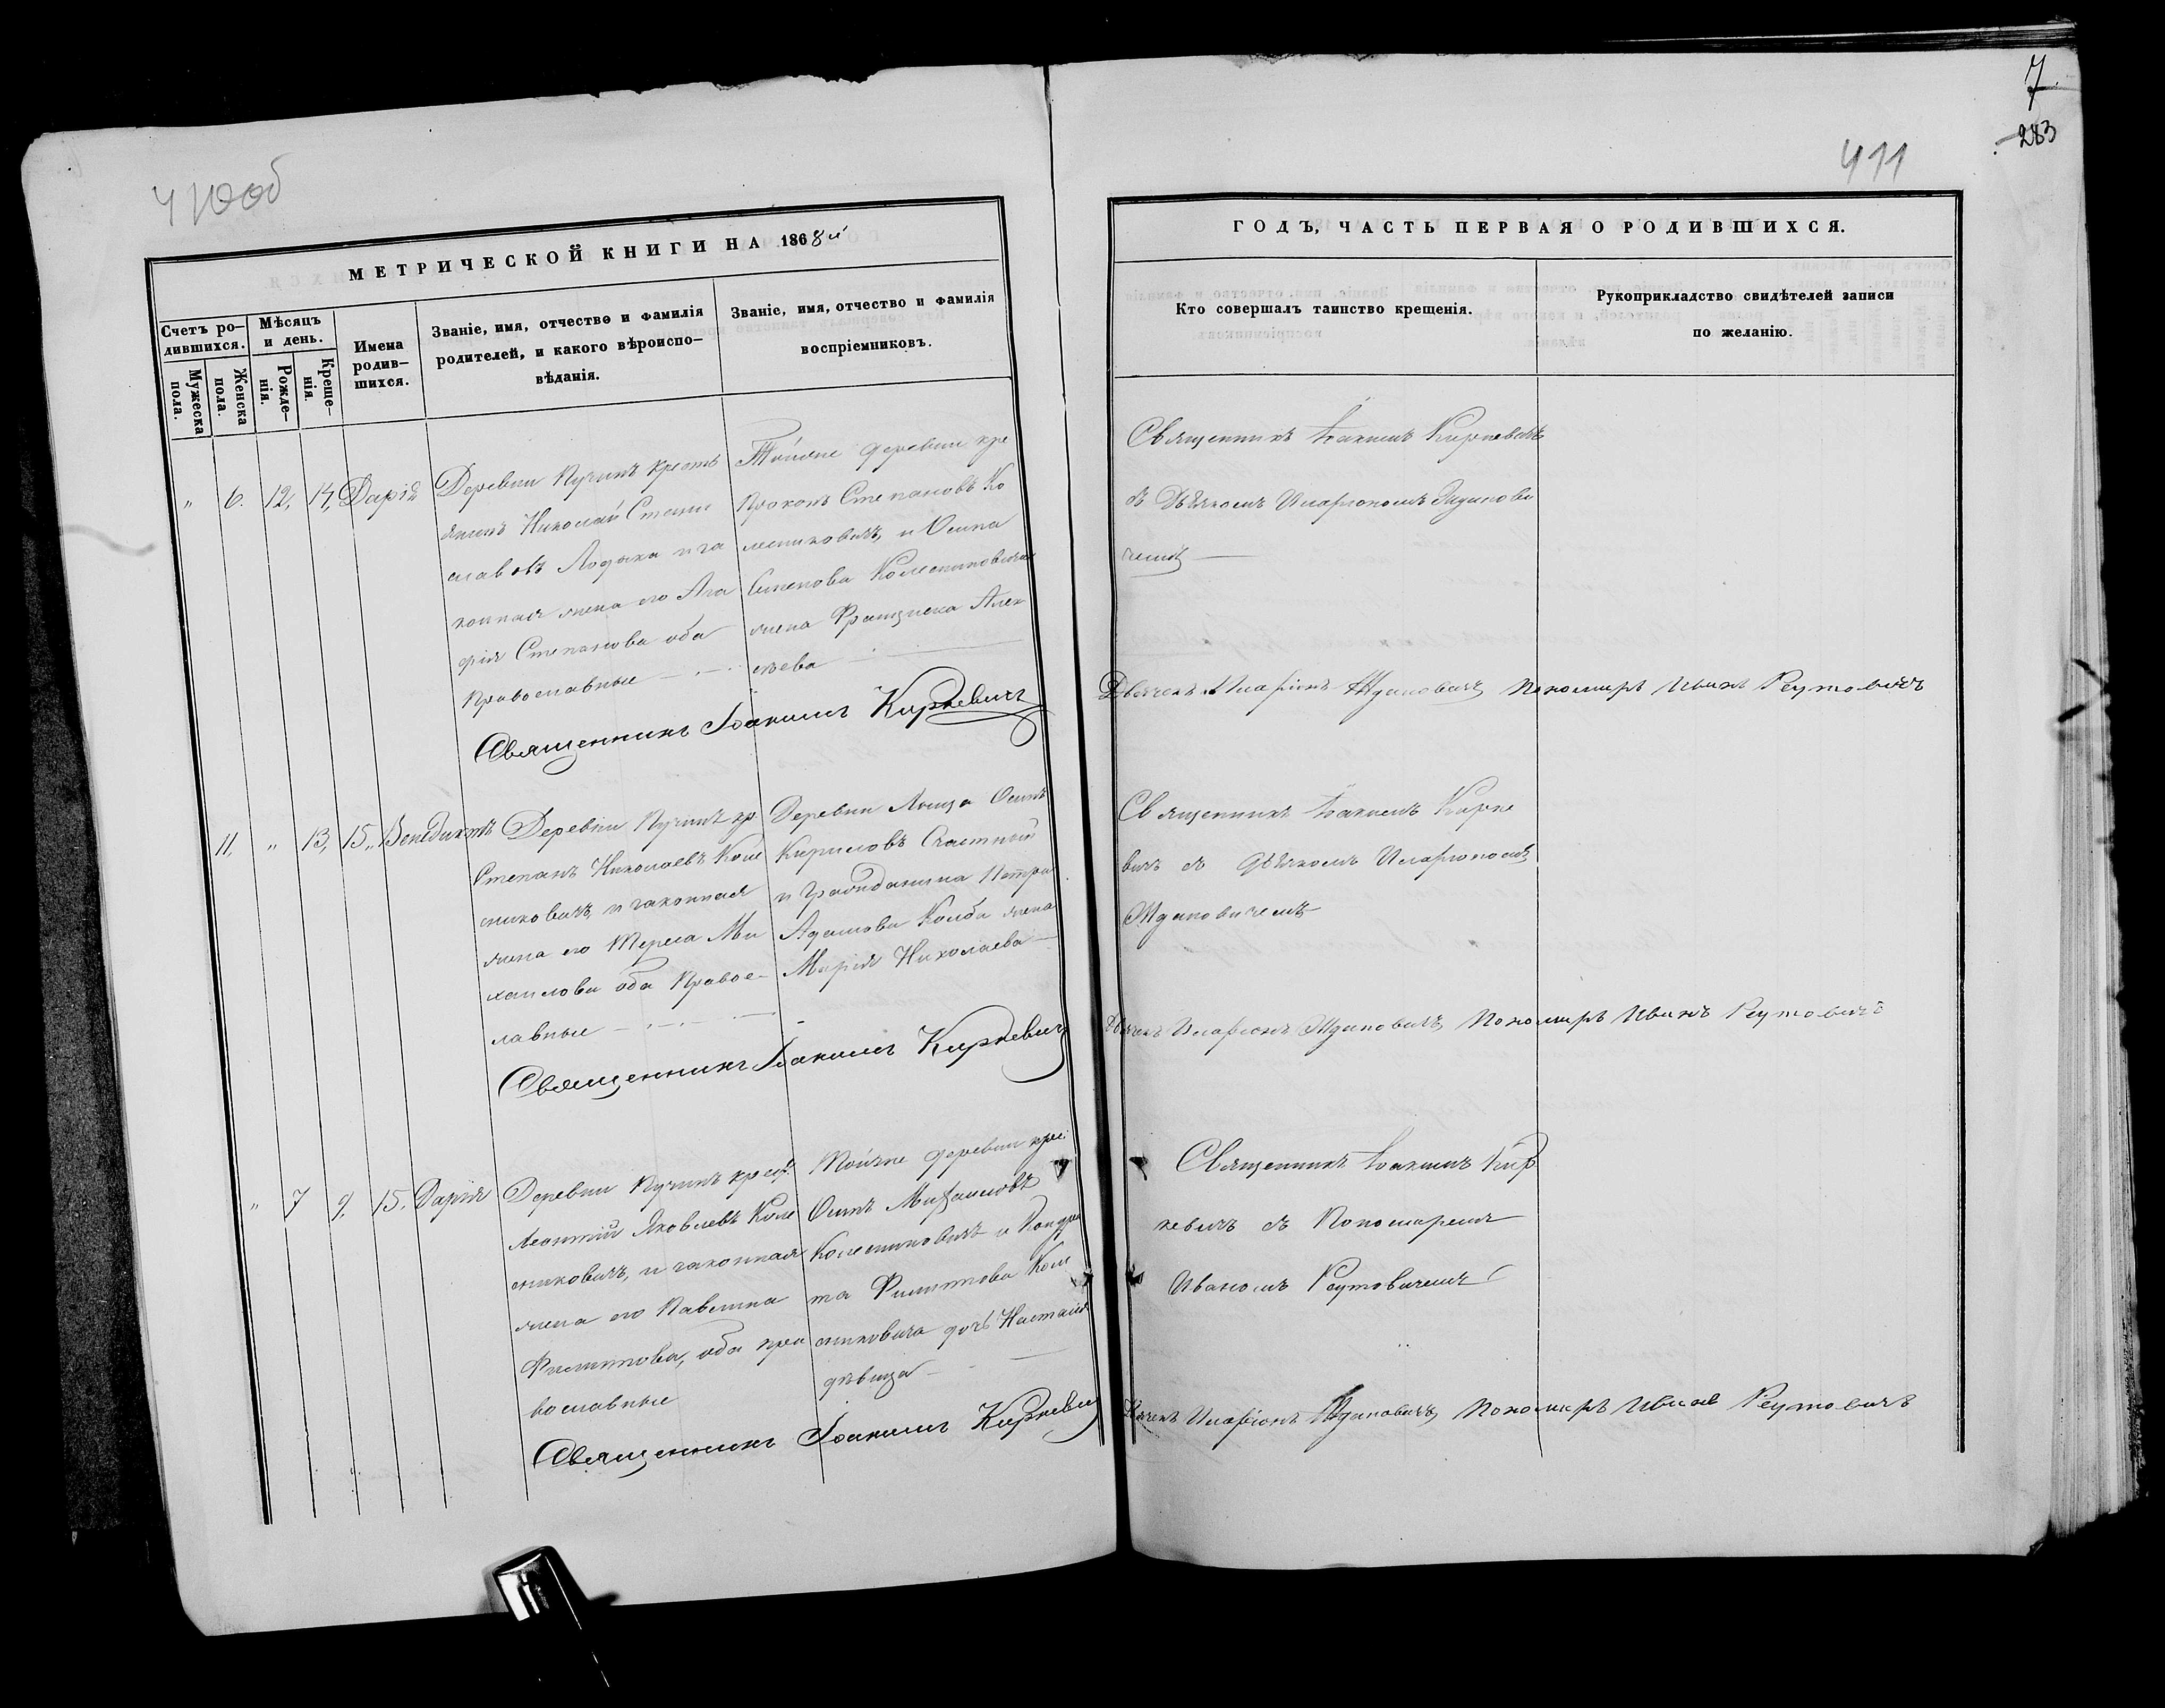 7
283
410об
411
МЕТРИЧЕСКОЙ КНИГИ НА 1868й
Счетъ ро-
дившихся.
Мужеска
пола.
Женска
пола.
Мѣсяцъ
и день.
Рожде-
нія.
Креще-
нія.
Имена
родив-
шихся.
Званіе, имя, отчество и фамилія
родителей, и какого вѣроиспо-
вѣданія.
Званіе, имя, отчество и фамилія
воспріемниковъ.
„ 6. 12, 14, Дарія
Деревни Пучинъ крестъ
янинъ Николай Стани
славовъ Лодыха и за
конная жена его Ага
фія Степанова оба
православные
Тойже деревни кре
Прокопъ Степановъ Ко
лесниковичъ, и Осипа
Семенова Колесниковича
жена Францишка Алек
сѣева
Священникъ Іоакимъ Киркевичъ
11, „ 13, 15, Венедиктъ
Деревни Пучинъ кр.
Степанъ Николаевъ Коле
сниковичъ, и законная
жена его Тереса Ми
хаилова оба Правос-
лавные
Деревни Осипъ
Кириловъ Счастный
и Гражданина Петра
Адамова жена
Марія Николаева
Священникъ Іоакимъ Киркевичъ
„ 7 9, 15, Дарія
Деревни Пучинъ крест
Леонтій Яковлевъ Коле
сниковичъ, и законная
жена его Павлина
Филиппова, оба пра
вославные
Тойже деревни крес
Осипъ Михаиловъ
Колесниковичъ и Кондра
та Филиппова Коле
сниковича дочь Насталія
дѣвица
Священникъ Іоакимъ Киркевич
ГОДЪ, ЧАСТЬ ПЕРВАЯ О РОДИВШИХСЯ.
Кто совершалъ таинство крещенія.
Рукоприкладство свидѣтелей записи
по желанію.
Священникъ Іоакимъ Киркевичъ
съ Дьячкомъ Иларіономъ Ждинови
чемъ
Дьячекъ Иларіонъ Ждиновичъ, Пономарь Иванъ Реутовичъ
Священникъ Іоакимъ Кирке
вичъ съ дьячкомъ Иларіономъ
Ждиновичемъ
Дьячекъ Иларіонъ Ждиновичъ, Пономарь Иванъ Реутовичъ
Священникъ Іоакимъ Кир
кевичъ съ Пономаремъ
Иваномъ Реутовичемъ
Дьячекъ Иларіонъ Ждиновичъ, Пономарь Иванъ Реутовичъ